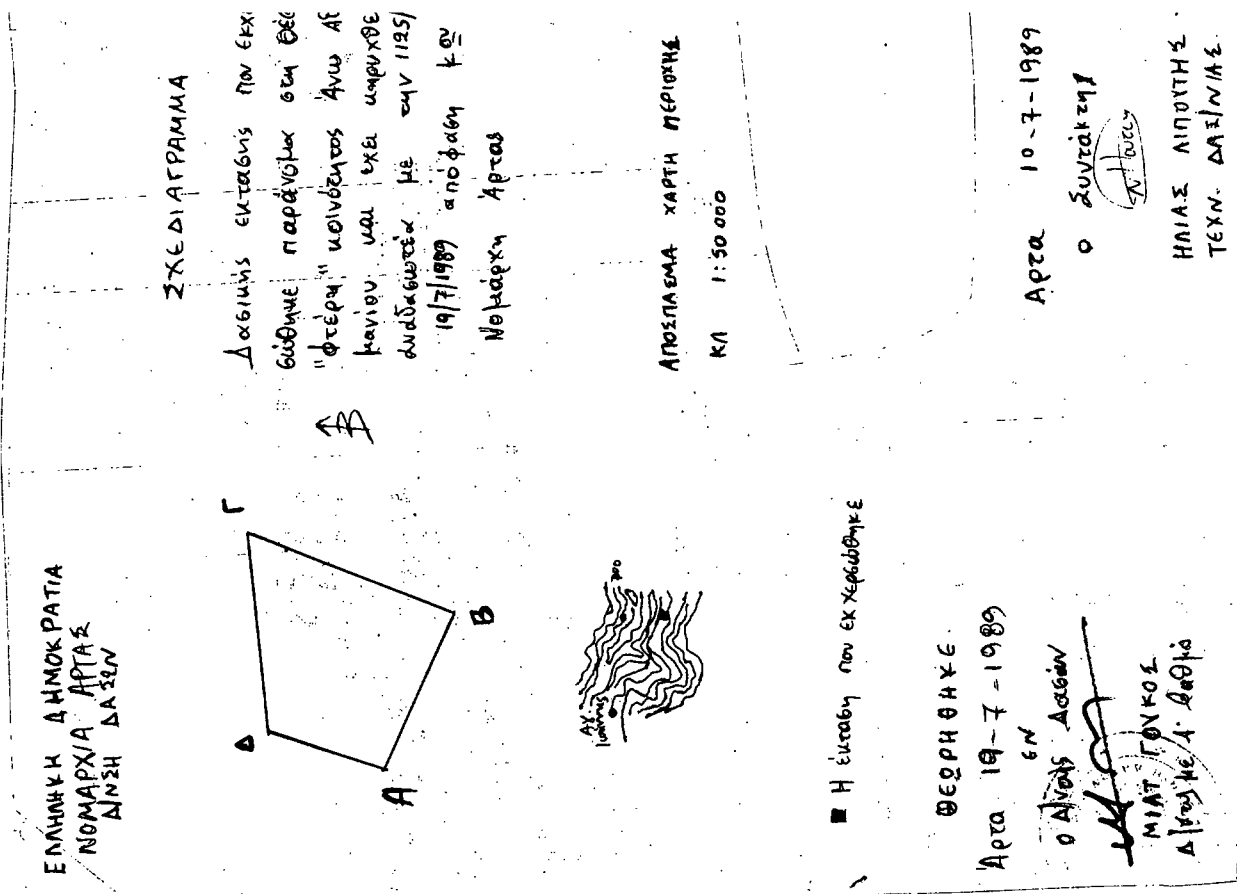 ΕΛΛΗΝΙΚΗ ΔΗΜΟΚΡΑΤΙΑ
ΝΟΜΑΡΧΙΑ ΑΡΤΑΣ
Δ/ΝΣΗ ΔΑΣΩΝ
ΣΧΕΔΙΑΓΡΑΜΜΑ
Δασικής εκτασης που εκχε
σώθηκε παράνομα στη θέσ
"Φτέρη" κοινότητος Άνω
μανίου και έχει κηρυχθε
αναδασωτέα με την 1125/
19/7/1989 απόφαση του
Νομάρχη Άρτας
Β
Δ
Γ
Α
Β
ΑΠΟΣΠΑΣΜΑ ΧΑΡΤΗ ΠΕΡΙΟΧΗΣ
ΚΛ 1:50 000
Αγ.
Ιωάννης
700
Η έκταση που εκχερσώθηκε
ΘΕΩΡΗΘΗΚΕ
Άρτα 19-7-1989
Ο Δ/ντής Δασών
ΓΟΥΚΟΣ
Δ/ντής με Α' βαθμό
Αρτα 10-7-1989
Ο Συντάκτης
ΗΛΙΑΣ ΛΙΠΟΥΤΗΣ
ΤΕΧΝ. ΔΑΣ/ΝΙΑΣ